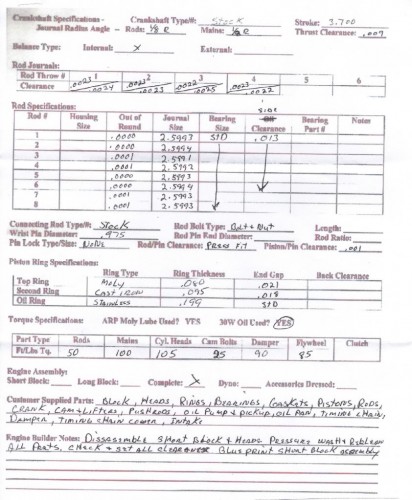 Crankshaft Specifications - Crankshaft Type/#: Stock Stroke: 3.700
Journal Radius Angle - Rods: 1/8 R Mains: 1/8 R Thrust Clearance: .007
Balance Type: Internal: X External:
Rod Journals:
Rod Throw # 1 2 3 4 5 6
Clearance .0023 .0024 .0023 .0023 .0022 .0025 .0023 .0022
Rod Specifications:
Side
Rod # Housing Size Out of Round Journal Size Bearing Size Clearance Bearing Part # Notes
1 .0000 2.5993 STD .013
2 .0000 2.5994
3 .0001 2.5991
4 .0001 2.5993
5 .0000 2.5993
6 .0000 2.5994
7 .0001 2.5993
8 .0001 2.5993
Connecting Rod Type/#: Stock Rod Bolt Type: Bolt & Nut Length:
Wrist Pin Diameter: .975 Rod Pin End Diameter: Rod Ratio:
Pin Lock Type/Size: Rod/Pin Clearance: Press Fit Piston/Pin Clearance: .001
Piston Ring Specifications:
Ring Type Ring Thickness End Gap Back Clearance
Top Ring Moly .080 .021
Second Ring Cast Iron .095 .018
Oil Ring Stainless .199 STD
Torque Specifications: ARP Moly Lube Used? YES 30W Oil Used? YES
Part Type Rods Mains Cyl. Heads Cam Bolts Damper Flywheel Clutch
Ft/Lbs Tq. 50 100 105 25 90 85
Engine Assembly:
Short Block: Long Block: Complete: X Dyno: Accessories Dressed:
Customer Supplied Parts: Block, Heads, Rings, Bearings, Gaskets, Pistons, Rods,
Crank, Cam & Lifters, Pushrods, Oil Pump & Pickup, Oil Pan, Timing Chain,
Damper, Timing Chain Cover, Intake
Engine Builder Notes: Dissassemble Short Block & Heads Pressure Wash & Reclean
All Parts, Check & Set All Clearances Blueprint Short Block Assembly